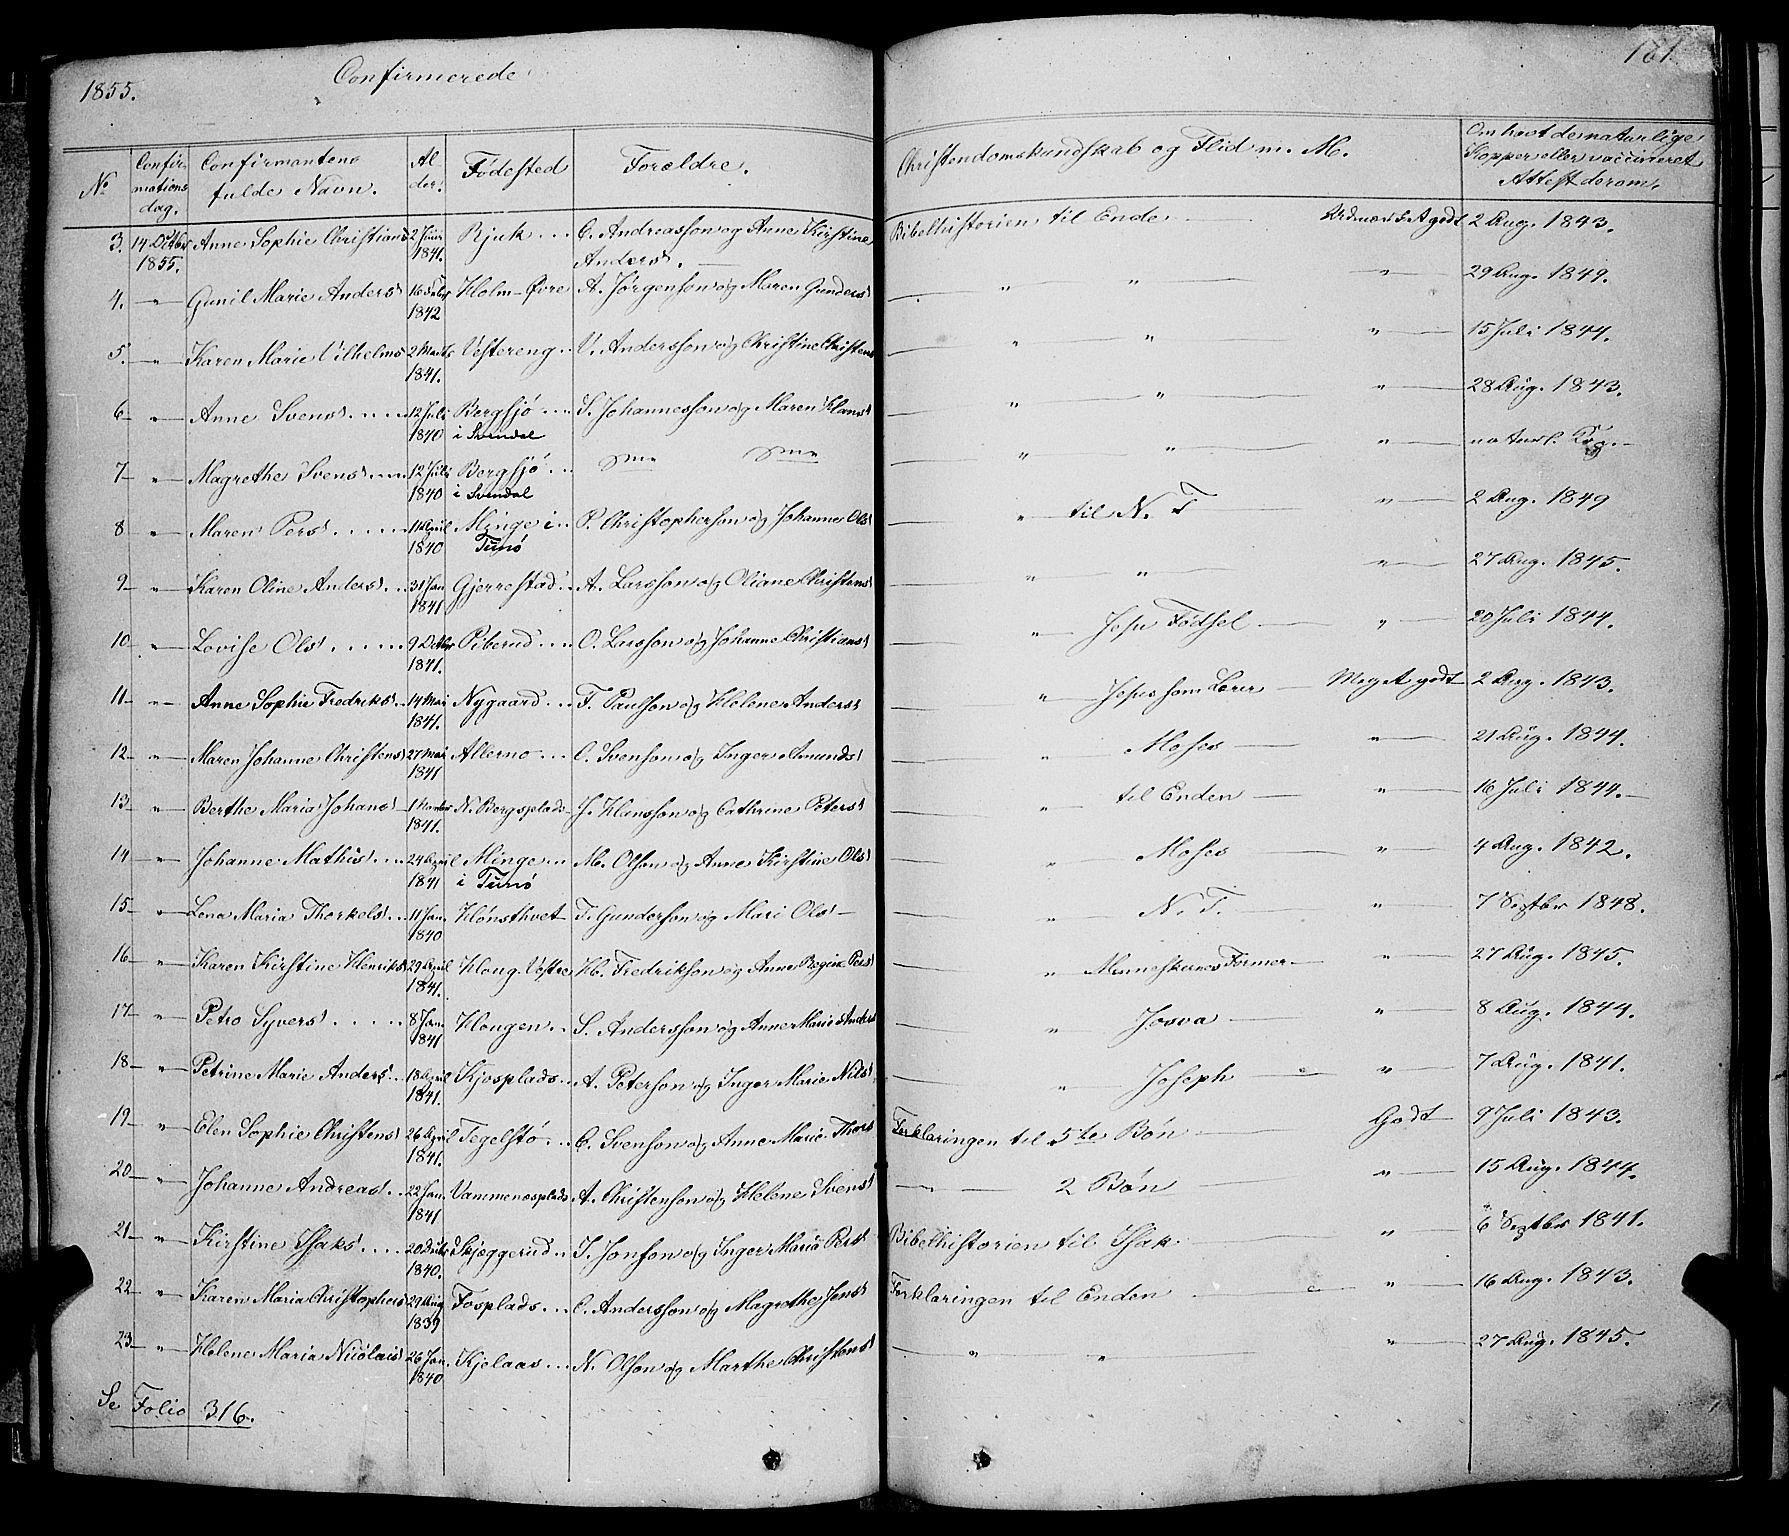 1855. Confirmerede 181.
No Confirmations dag. Confirmantens fulde Navn. Alder. Fødested Forældre. Christendomskundskab og Flid m. M. Om havt de naturlige Kopper eller vaccineret Attest derom.
3. 14 Octbr 1855. Anne Sophie Christians 2 Juni 1841. Bjuk... C. Andreasson og Anne Kirstine Anders. — Bibelhistorien til Ende — Udmærket godt 2 Aug. 1843.
4. " Gunil Marie Anders 16 Febr 1842 Holm-Øvre A. Jørgenson og Maren Gunders — " " — " — 29 Aug. 1849.
5. " Karen Marie Vilhelms 2 Marts 1841. Vestereng.. V. Andersson og Christine Christens — " " — " — 15 Juli 1844.
6 " Anne Svens..... 12 Juli 1840 Bergsjø... i Svendal S. Johannesson og Maren Hans — " " — " — 28 Aug. 1843.
7- " Magrethe Svens.... 12 Juli 1840 Bergsjø... i Svendal Sme Sme — " " — " — naturl. Kop. -
8 " Maren Pers..... 14 April 1840 Minge i.. Tunø P. Christopherson og Johanne Ols " — til N. T — " — 2 Aug. 1849
9- " Karen Oline Anders.. 31 Jan 1841 Gjerrestad.. A. Larsson og Oliane Christens — " " — " — 27 Aug. 1845.
10- " Lovise Ols...... 9 Octbr 1841. Piberud... O. Larsson og Johanne Christians — " — Jesu Fødsel — " — 20 Juli 1844.
11- " Anne Sophie Fredriks.. 14 Mai 1841. Nygaard... F. Paulson og Helene Anders — " — Jesus som Lærer — Meget godt 2 Aug. 1843.
12- " Maren Johanne Christens 27 Mai 1841 Allerno... C. Svenson og Inger Amunds — " Moses — " — 21 Aug. 1844.
13- " Berthe Maria Johans 1841. N. Bergsplads J. Hansson og Cathrine Peters — " til Enden — " — 16 Juli 1844.—
14 " Johanne Mathis... 24 April 1841 Minge... i Tunø M. Olson og Anne Kirstine Ols " Moses — " — 4 Aug. 1842.
15- " Lena Maria Thorkels.. 11 Jan. 1840 Hønsthvet T. Gunderson og Mari Ols — " N. T. — " — 7 Septbr 1848.
16- " Karen Kirstine Henriks 29 April 1841. Houg. Vestre H. Fredrikson og Anne Regine Pers — " Menneskenes Former — " — 27 Aug. 1845.
17- " Petro Syvers..... 8 Jan 1841 Hougen.. S. Andersson og Anne Marie Anders — " Josva — " — 8 Aug. 1844.
18- " Petrine Marie Anders. 18 April 1841. Kjosplads.. A. Peterson og Inger Marie Nils — " Joseph — " — 7 Aug. 1841.
19- " Elen Sophie Christens 26 April 1841. Tegelstø... C. Svenson og Anne Marie Thors Forklaringen til 5te Bøn — Godt — 9 Juli 1843.
20- " Johanne Andreas.. 22 Jan. 1841 Vammenæsplads A. Christenson og Helene Svens — — 2 Bøn — " — 15 Aug. 1844.
21- " Kirstine Isaks.... 20 Octbr 1840. Skjæggerud.. I. Jonson og Inger Maria Pers Bibelhistorien til Isak — " — 6 Septbr 1841.
22- " Karen Maria Christophers 29 Aug 1839 Fosplads... C. Andersson og Magrethe Jens Forklaringen til Enden — " — 16 Aug. 1843.
23- " Helene Maria Nicolais 26 Jan. 1840 Kjolaas... N. Olson og Marthe Christens — " " — " — 27 Aug. 1845.
Se Folio 316.